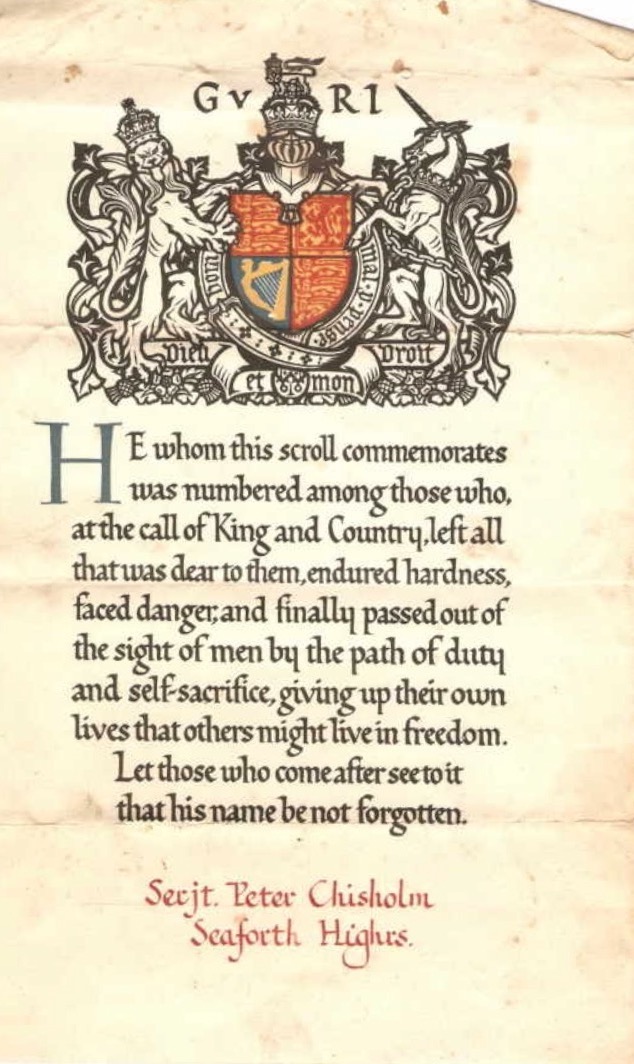 G V R I
Honi ma·y·pense
Dieu droit
et mon
HE whom this scroll commemorates
was numbered among those who,
at the call of King and Country, left all
that was dear to them, endured hardness,
faced danger, and finally passed out of
the sight of men by the path of duty
and self-sacrifice, giving up their own
lives that others might live in freedom.
Let those who come after see to it
that his name be not forgotten.
Serjt. Peter Chisholm
Seaforth Highrs.